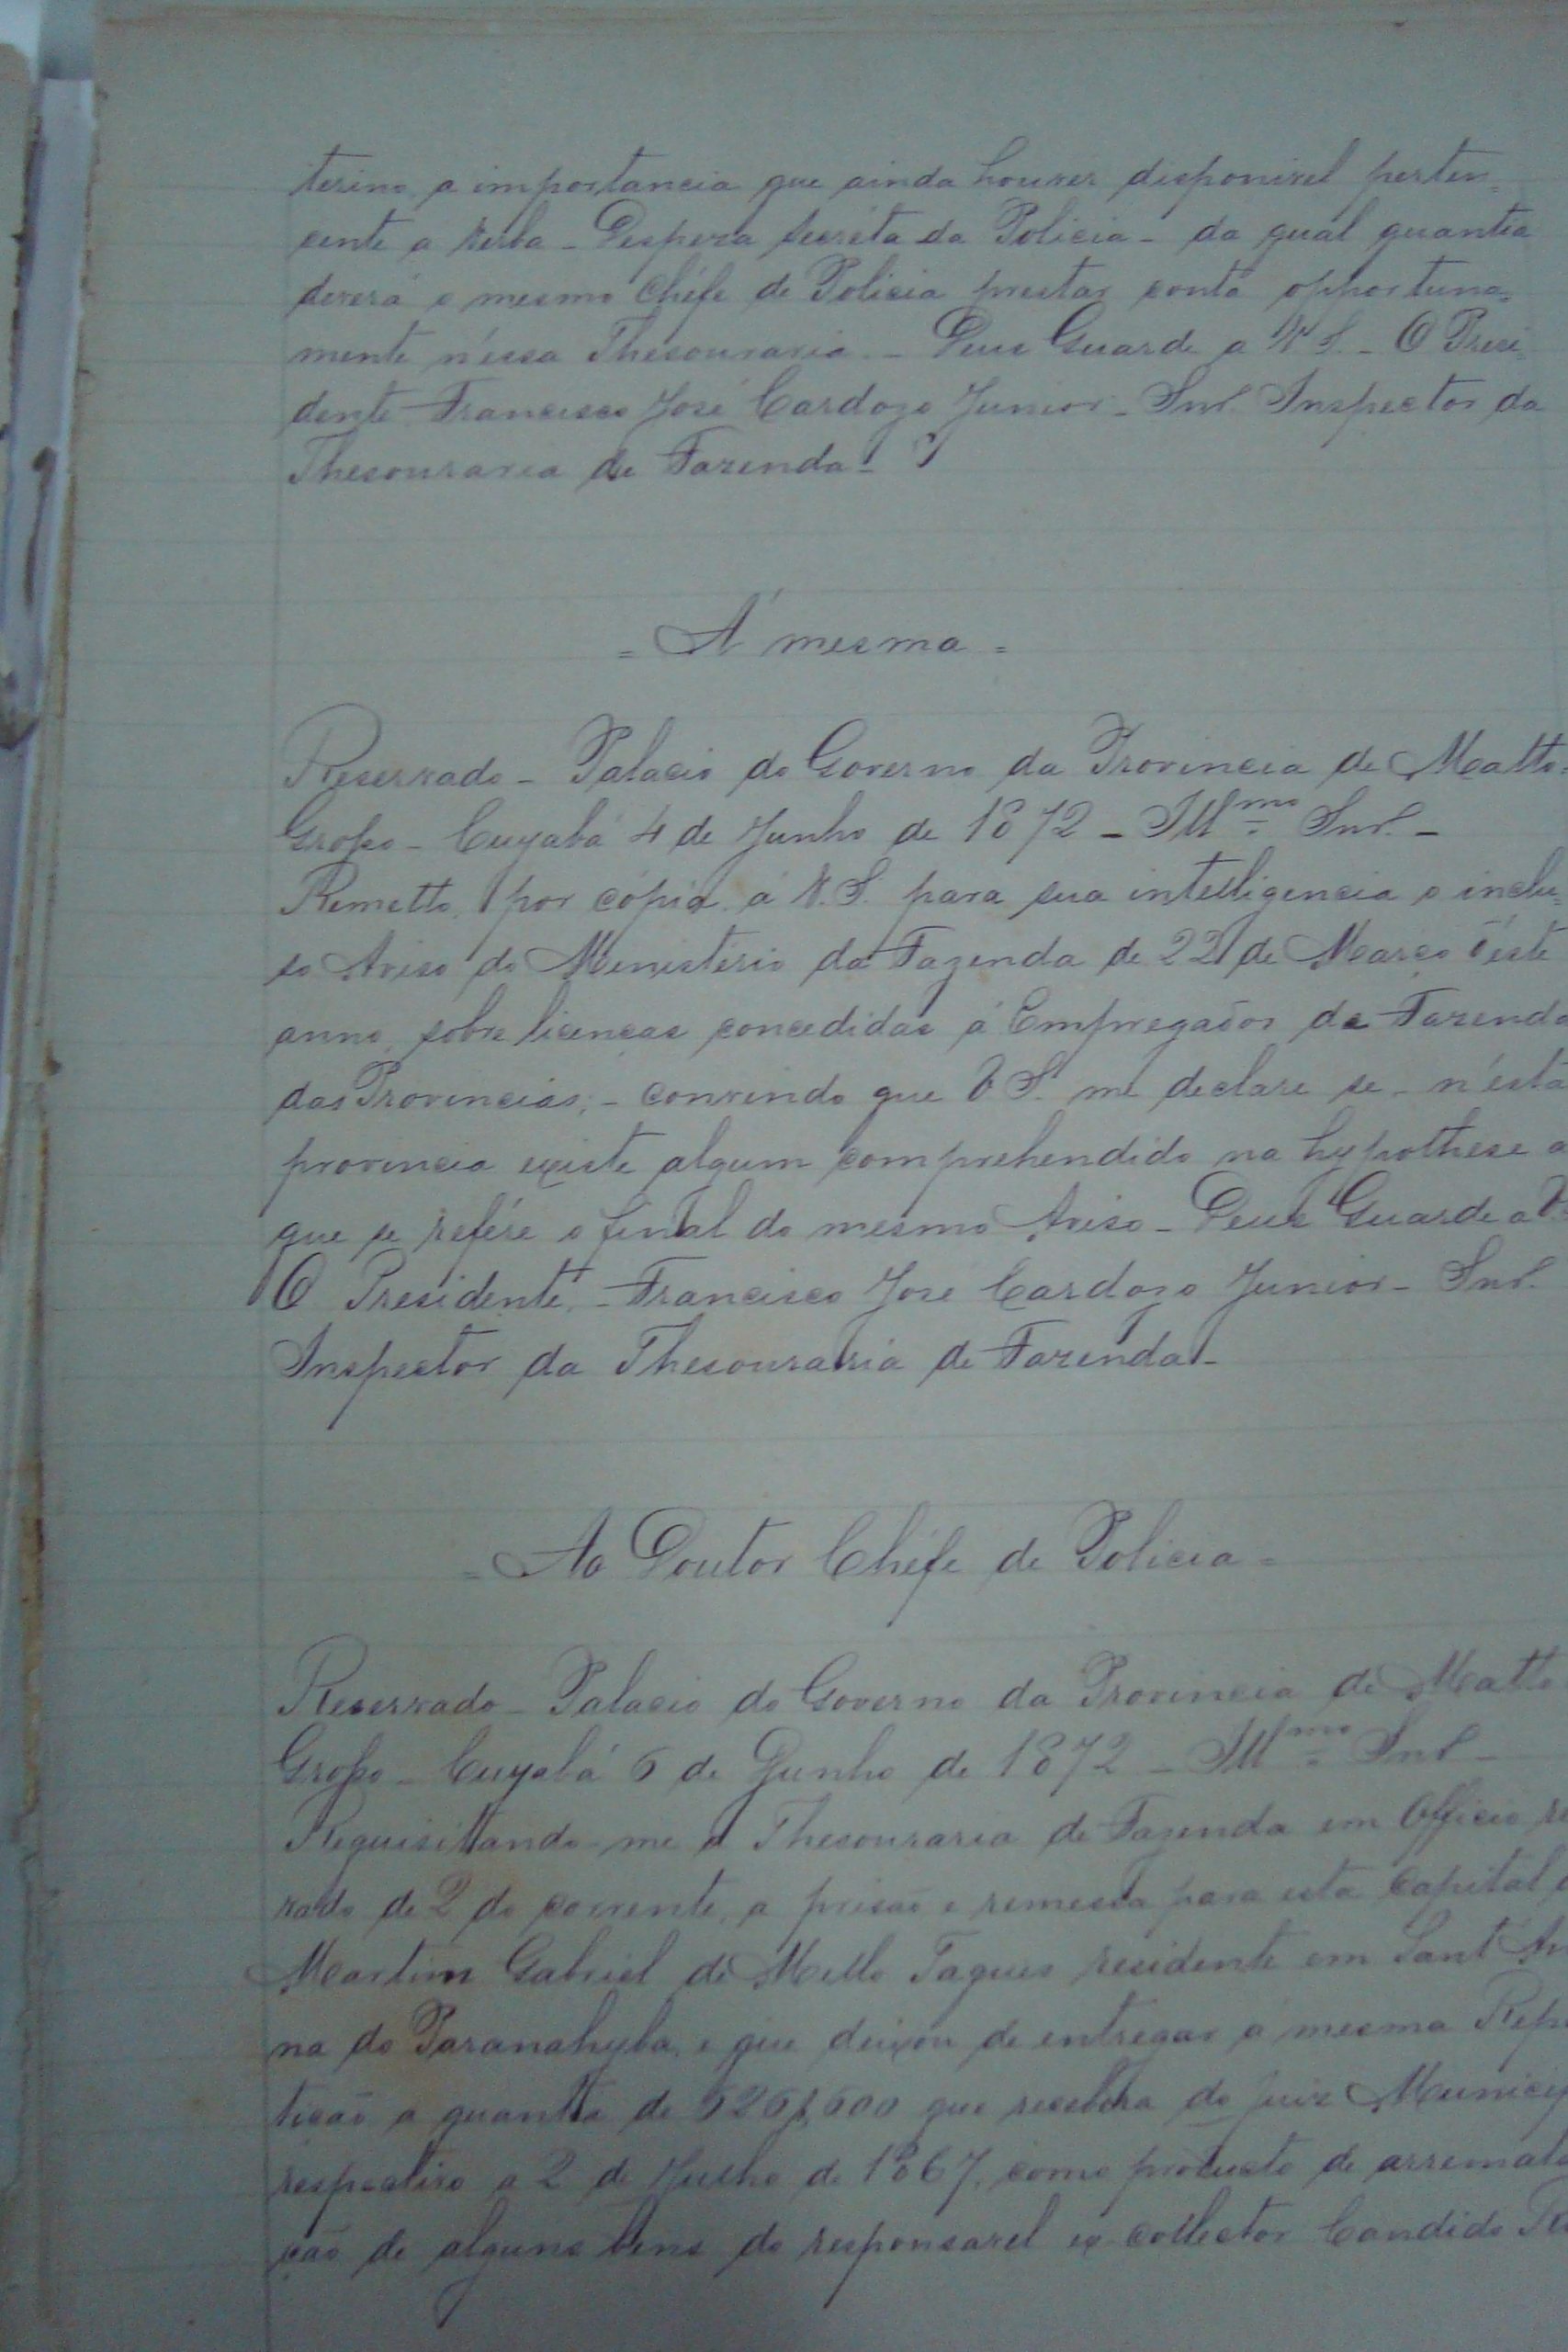 terino a importancia que ainda houver disponivel perten=
cente a verba - Despeza secréta da Policia - da qual quantia
deverá o mesmo Chéfe de Policia prestar conta opportuna=
mente n'éssa Thesouraria - Deus Guarde a V. S. - O Presi=
dente Francisco José Cardozo Junior - Snr. Inspector da
Thesouraria de Fazenda -
= A' mesma =
Reservado - Palacio do Governo da Provincia de Matto=
Grosso - Cuyabá 4 de Junho de 1872 - Illmo Snr. -
Remetto, por cópia á V. S. para sua intelligencia o inclu=
so Aviso do Ministério da Fazenda de 22 de Março d'éste
anno, sobre licenças concedidas á Empregados de Fazenda
das Provincias; - convindo que V. S. me declare se n'ésta
provincia existe algum comprehendido na hypothese a
que se refére o final do mesmo Aviso - Deus Guarde a V.
O Presidente, - Francisco José Cardozo Junior - Snr.
Inspector da Thesouraria de Fazenda -
= Ao Doutor Chéfe de Policia =
Reservado - Palacio do Governo da Provincia de Matto
Grosso - Cuyabá 6 de Junho de 1872 - Illmo Snr -
Requisittando-me a Thesouraria de Fazenda em Officio re
vado de 2 do corrente, a prisão e remessa para esta Capital d
Martim Gabriel de Mello Taques residente em Sant'An
na do Paranahyba, e que deixou de entregar á mesma Repar
tição a quantia de que recebera do Juiz Municip
respectivo a 2 de Julho de 1867, como producto de arremata
ção de alguns bens do responsavel ex-collector Candido